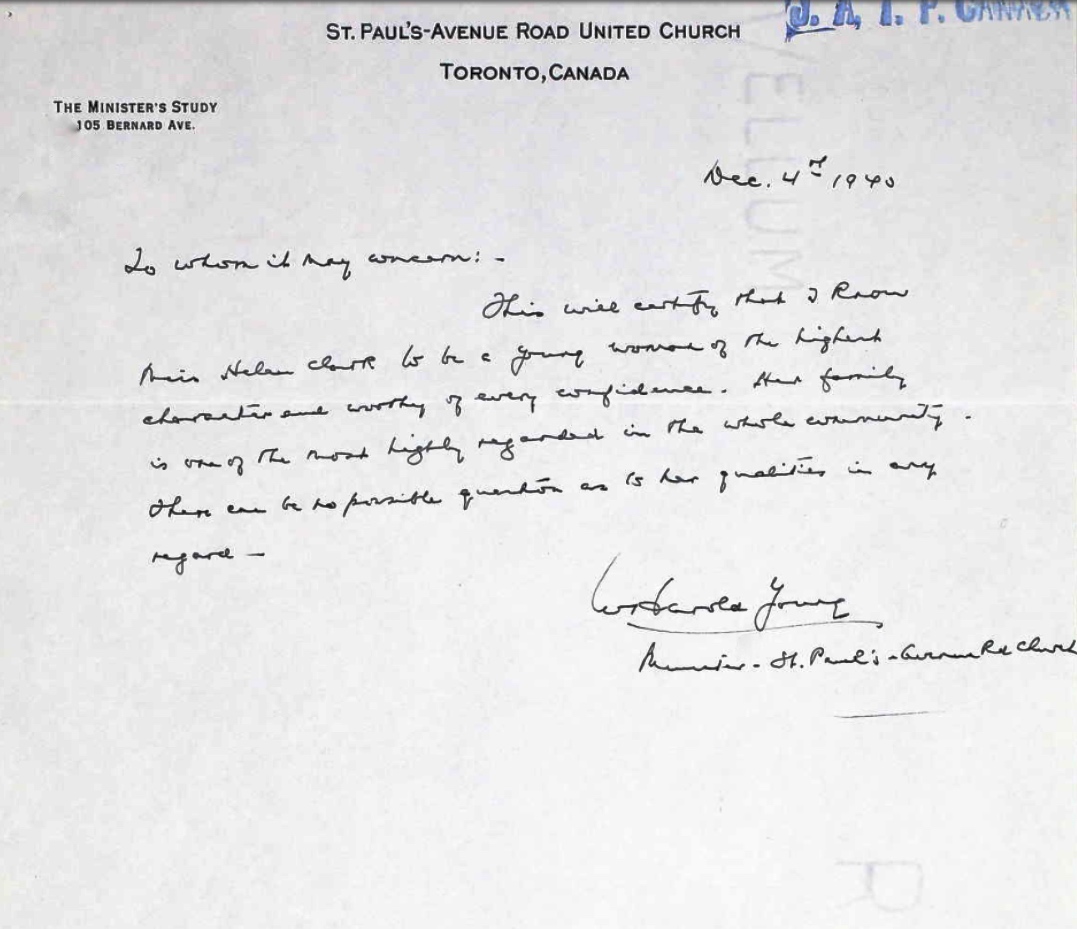 J. A. T. P. CANADA
ST. PAUL'S-AVENUE ROAD UNITED CHURCH
TORONTO, CANADA
THE MINISTER'S STUDY
105 BERNARD AVE.
Dec. 4th 1940
To whom it may concern: -
This will certify that I know
Miss Helen Clark to be a young woman of the highest
character and worthy of every confidence. Her family
is one of the most highly regarded in the whole community.
There can be no possible question as to her qualities in any
regard —
Harold Young
Minister - St. Paul's - Avenue Rd Church
VELLUM
R